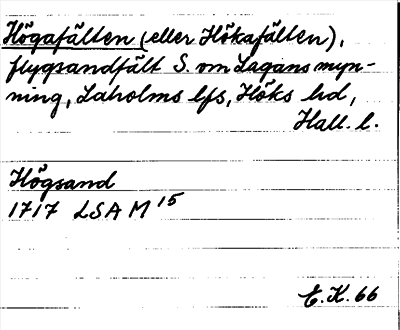 Högafälten (eller Hökafälten),
flygsandfält S. om Lagans myn-
ning, Laholms lfs, Höks hd,
Hall. l.
Högsand
1717 LSA M 15
E.K. 66